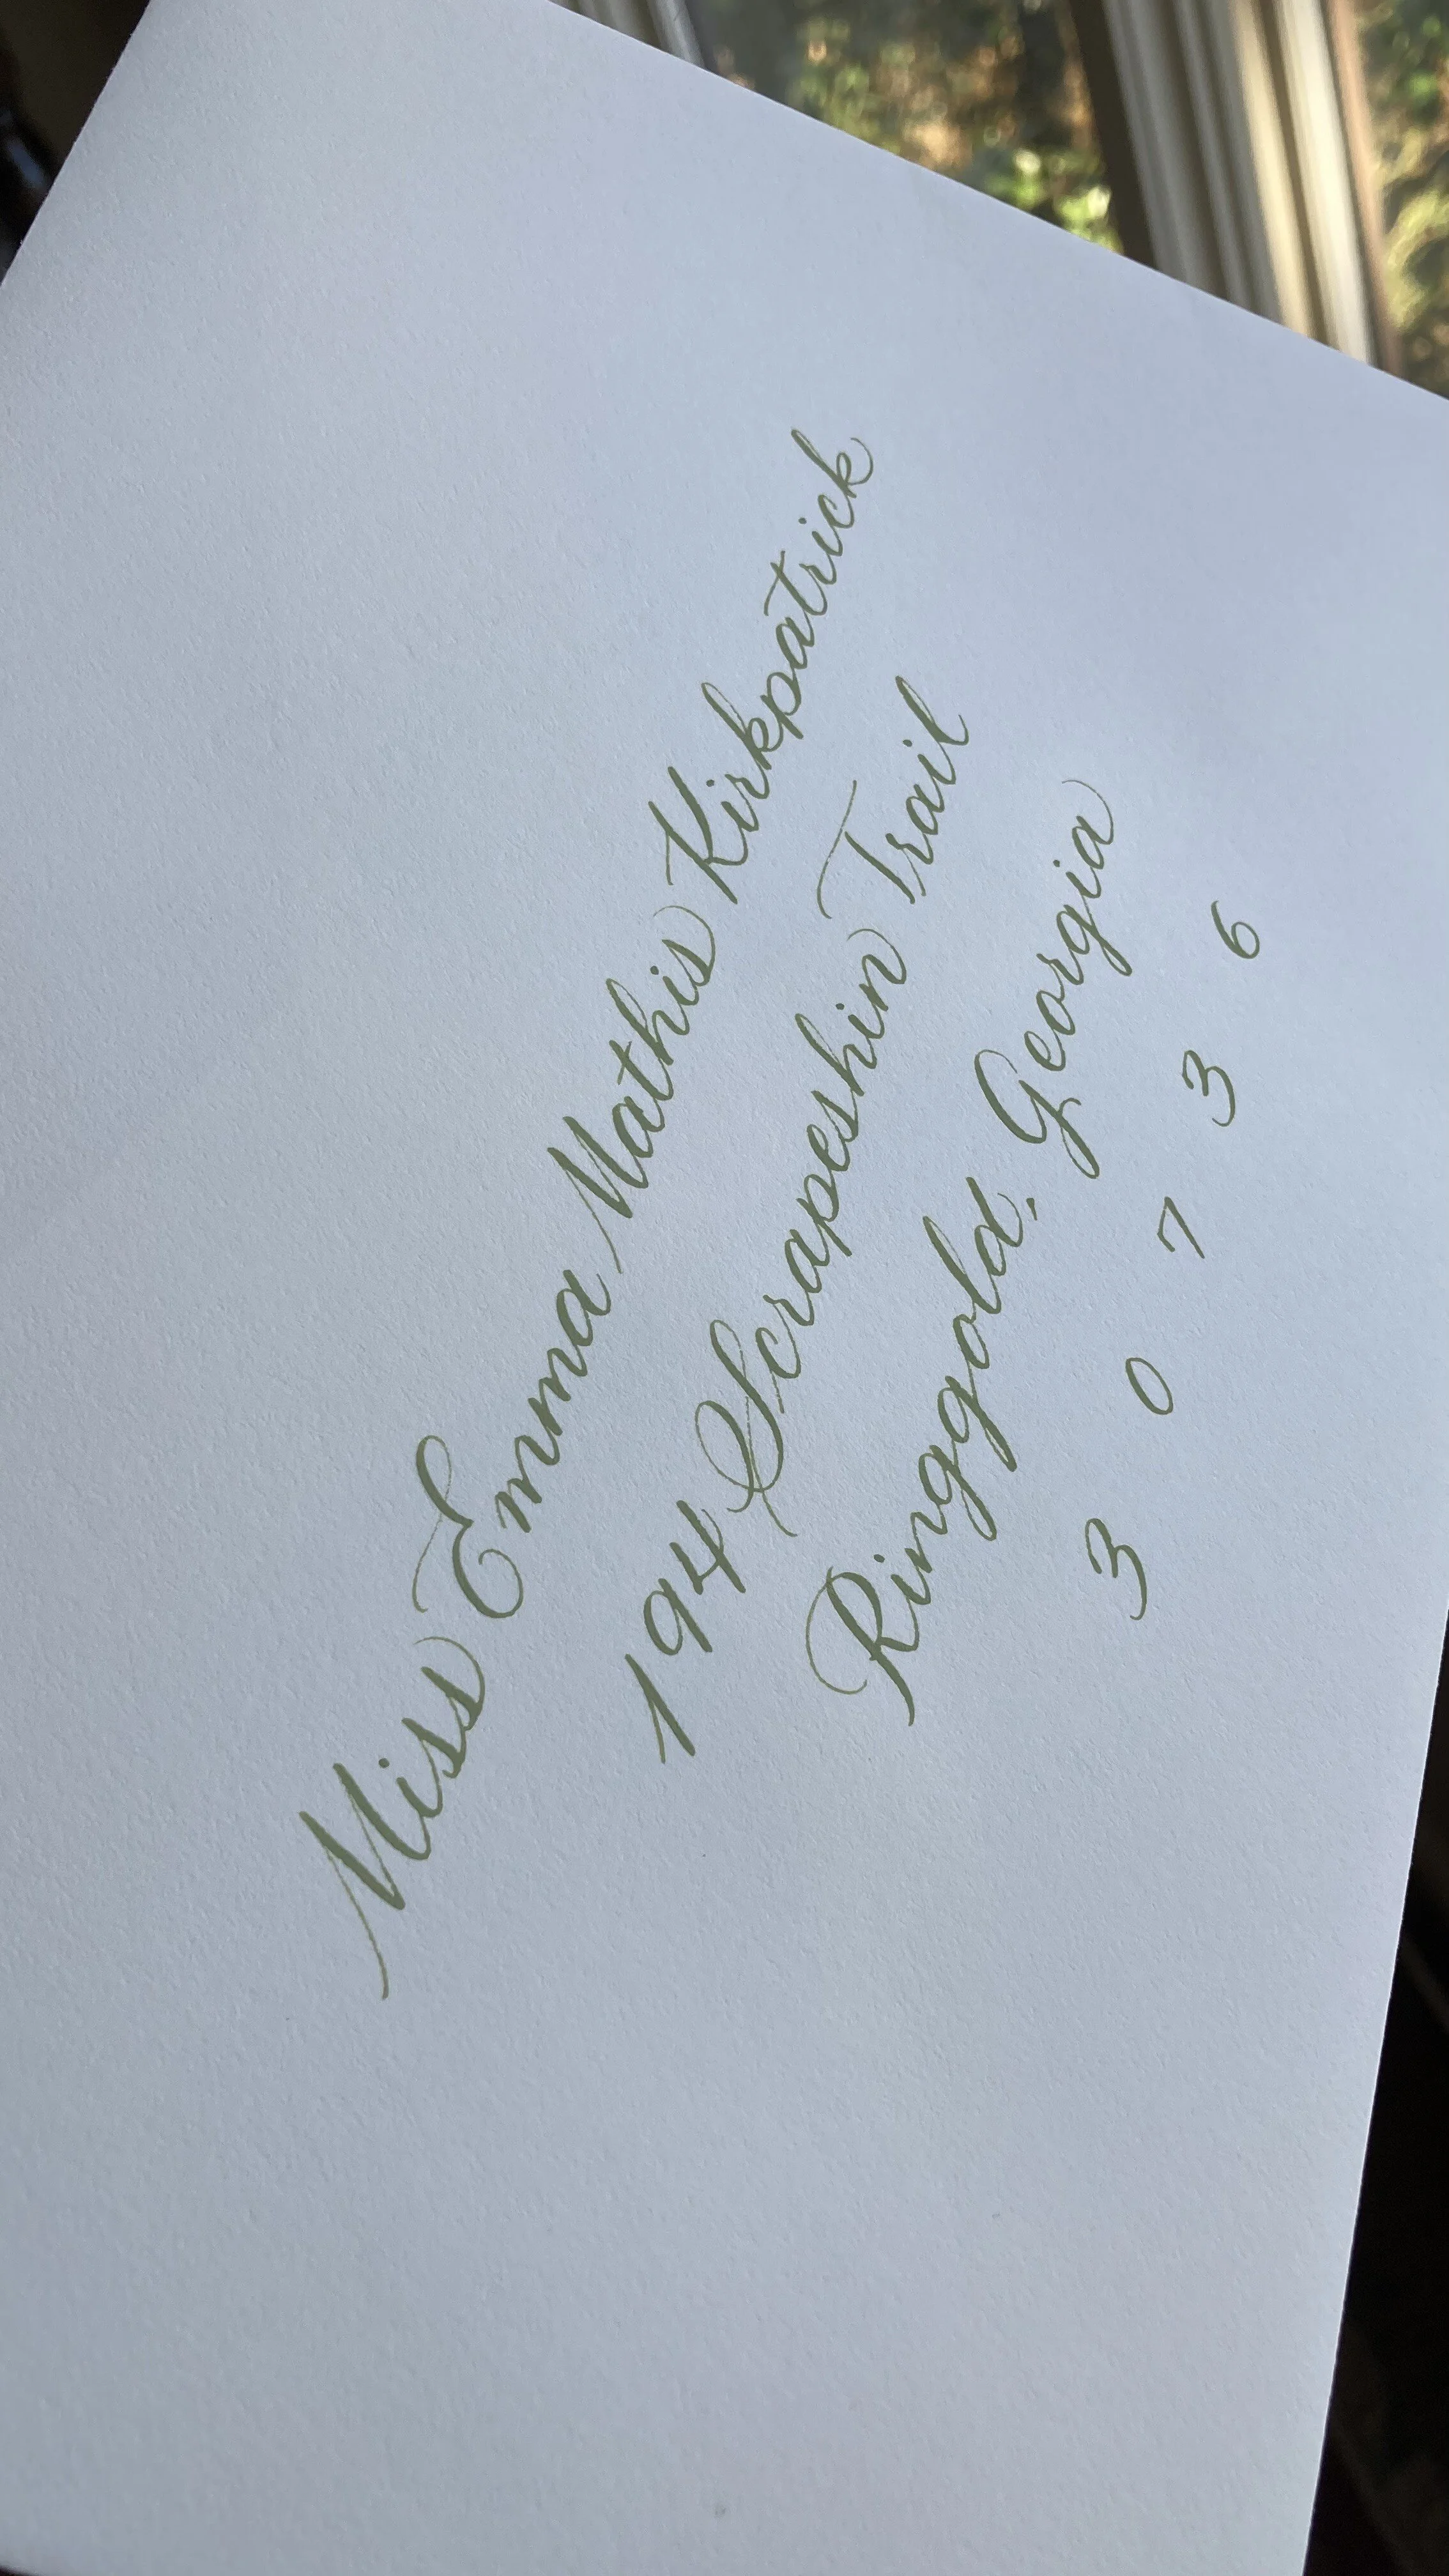 Miss Emma Mathis Kirkpatrick
194 Scrapeshin Trail
Ringgold, Georgia
3 0 7 3 6